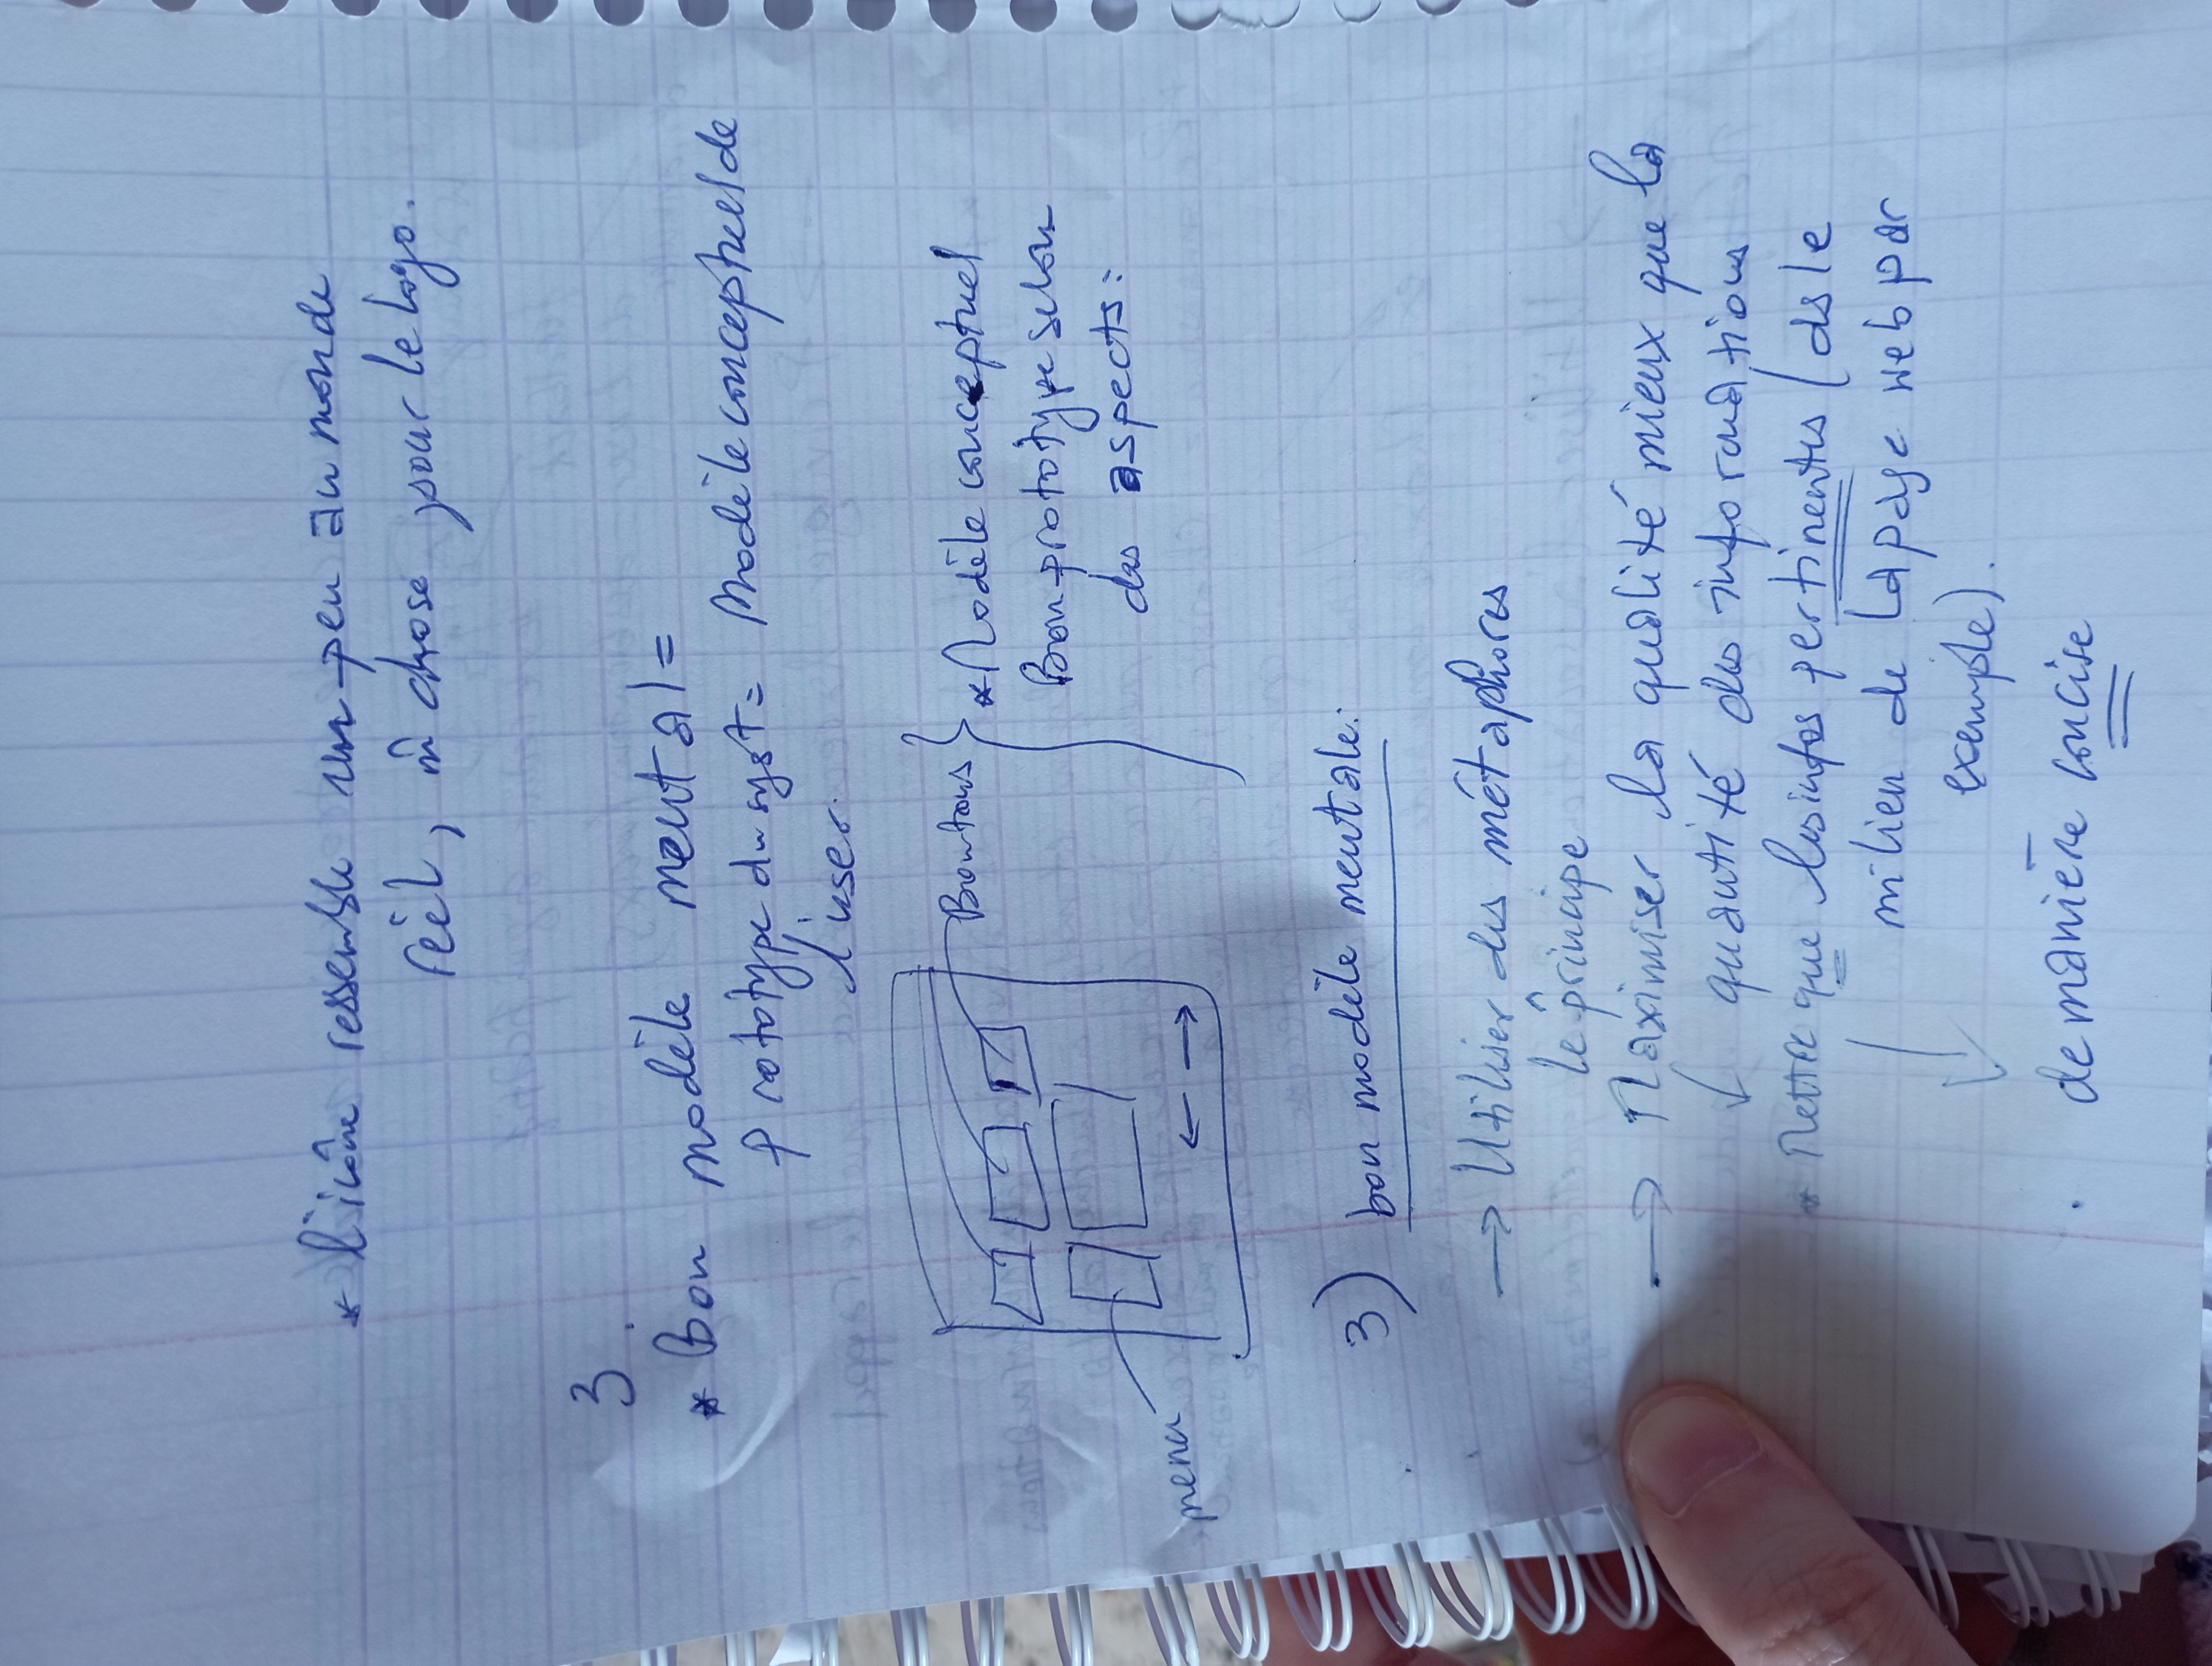 * l'icône ressemble un peu au monde
réel, m̂ chose pour le logo.
3.
* Bon modèle mental =
prototype du syst = Modèle conceptuel de
l'user.
Boutons
* Modèle conceptuel
Bon prototype selon
des aspects :
menu
3) bon modèle mentale :
→ Utiliser des métaphores
le principe
→ Maximiser la qualité mieux que la
quantité des informations
* Mettre que les infos pertinentes (ds le
milieu de la page web par
exemple).
de manière concise